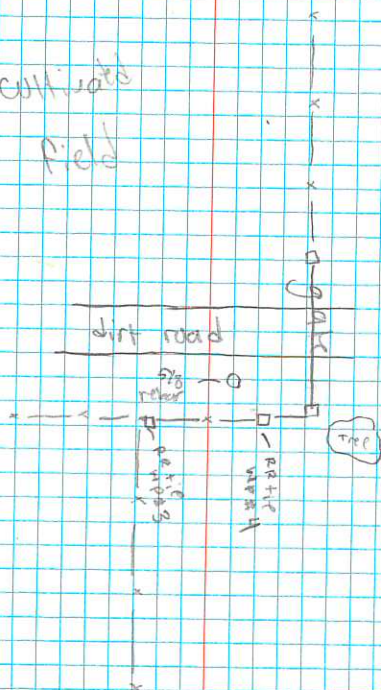 cultivated
field
gate
dirt road
5/8
rebar
tree
RR tie
RR tie